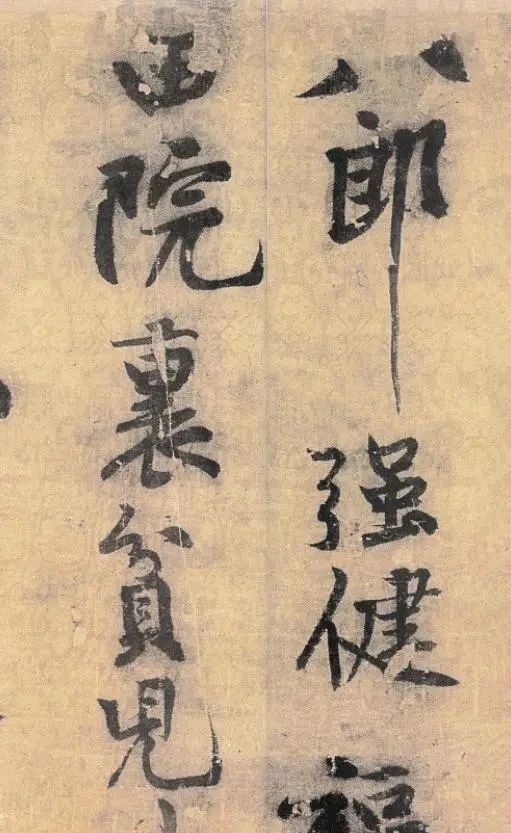 八郎强健
院裏貧兒